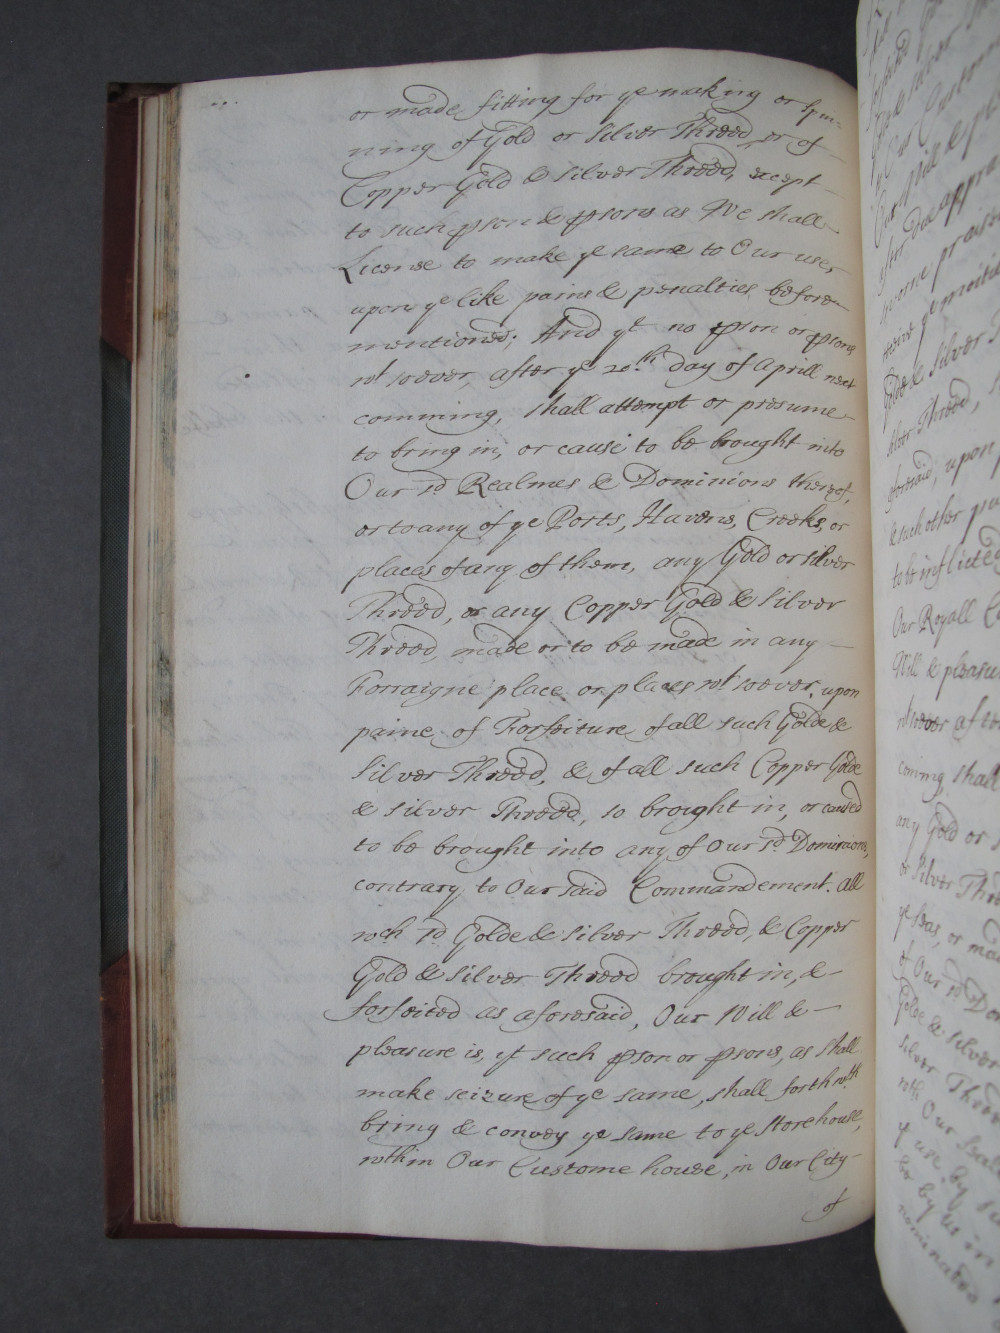 or made fitting for ye making or spin=
ning of Gold or Silver Threed, or of
Copper Gold & Silver Threed, except
to such pson & psons as We shall
License to make ye same to Our use,
upon ye like pains & penalties before
mentioned; And yt no pson or psons
wt soever, after ye 20th day of Aprill next
comming, shall attempt or presume
to bring in, or cause to be brought into
Our sd Realmes & Dominions thereof,
or to any of ye Ports, Havens, Creeks, or
places of any of them, any Gold or silver
Threed, or any Copper Gold & Silver
Threed, made or to be made in any
Forraigne place or places wt soever, upon
paine of Forfeiture of all such Golde &
Silver Threed, & of all such Copper Golde
& Silver Threed, so brought in, or caused
to be brought into any of Our sd Dominions,
contrary to Our said Commandement. All
wch sd Golde & Silver Threed, & Copper
Gold & Silver Threed brought in, &
forfeited as aforesaid, Our Will &
pleasure is, yt such pson or psons, as shall
make seizure of ye same, shall forthwth
bring & convey ye same to ye Storehouse,
wthin Our Custome house, in Our City
of
aforesaid, upon
& such other
to be inflicted
Our Royall
Will & pleasure
wt soever after
coming, shall
any Gold or
or Silver
ye seas, or
of Our sd
Golde & Silver
Silver
wth Our
ye use, by
nominated